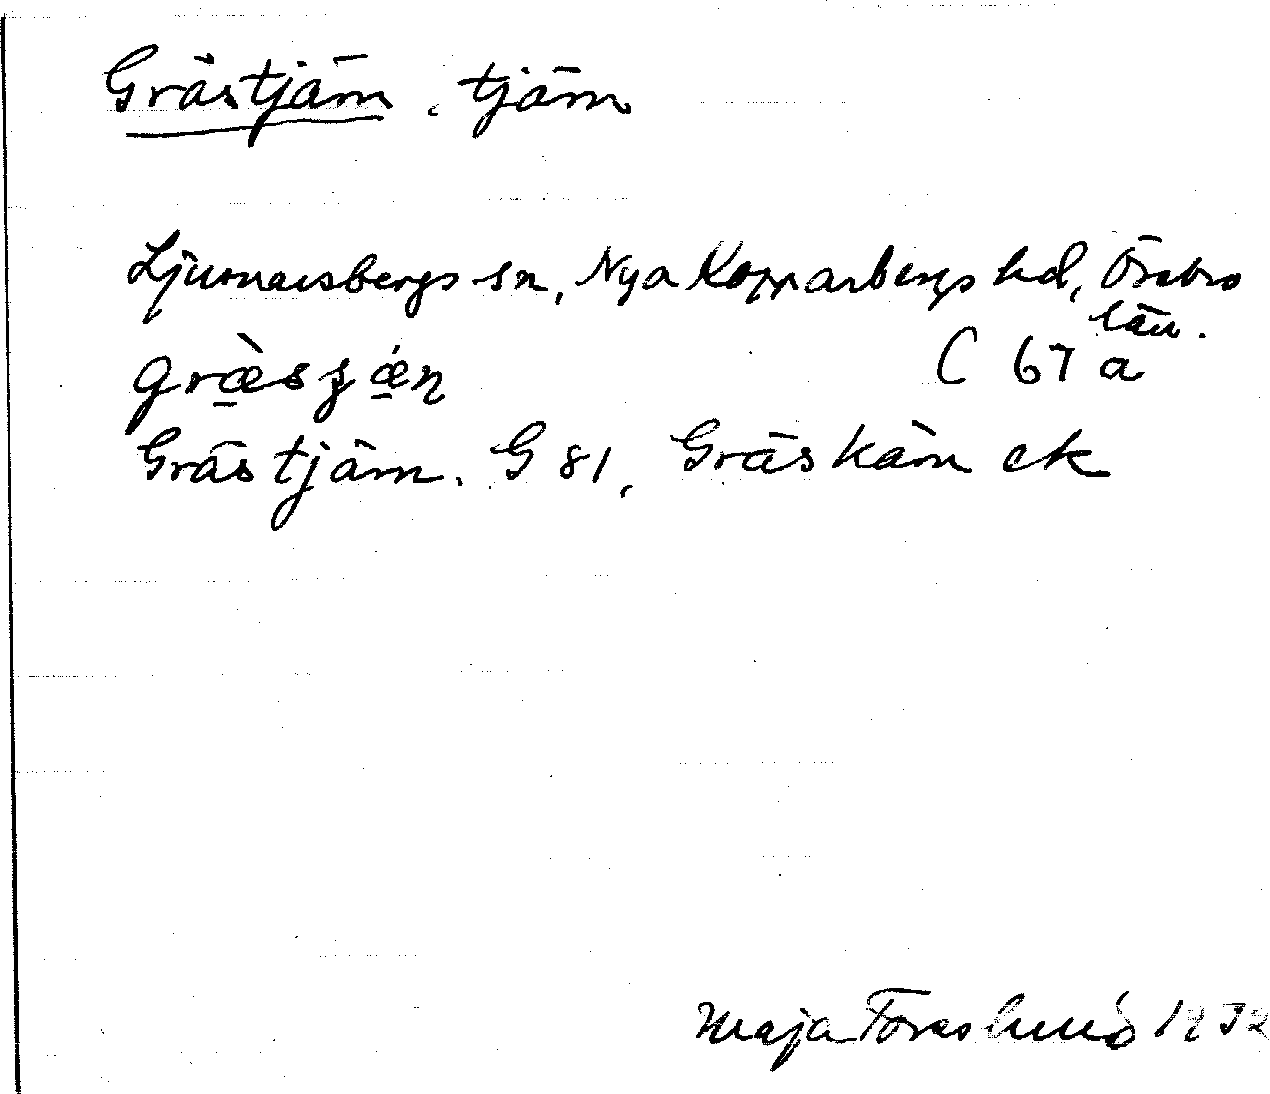 Grästjärn, tjärn
Ljusnarsbergs sn, Nya Kopparbergs hd, Örebro
län.
C 67 a
Grästjärn. G 81, Gräskärn ek
Maja Forslund 1932